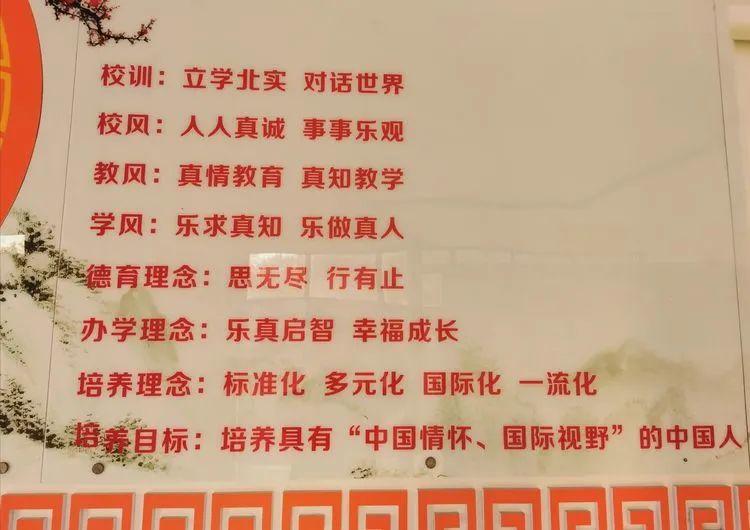 校训：立学北实 对话世界
校风：人人真诚 事事乐观
教风：真情教育 真知教学
学风：乐求真知 乐做真人
德育理念：思无尽 行有止
办学理念：乐真启智 幸福成长
培养理念：标准化 多元化 国际化 一流化
培养目标：培养具有“中国情怀、国际视野”的中国人